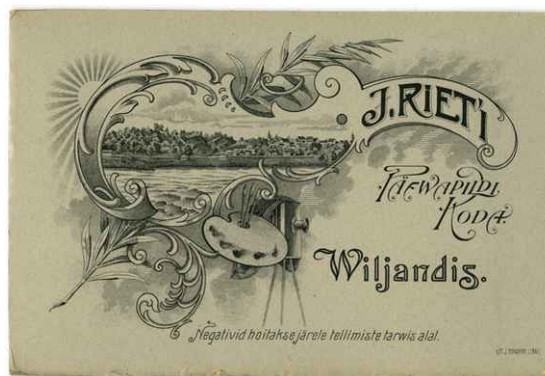 J. RIET'I
Päewapildi
Koda.
Wiljandis.
Negativid hoitakse järele tellimiste tarwis alal.